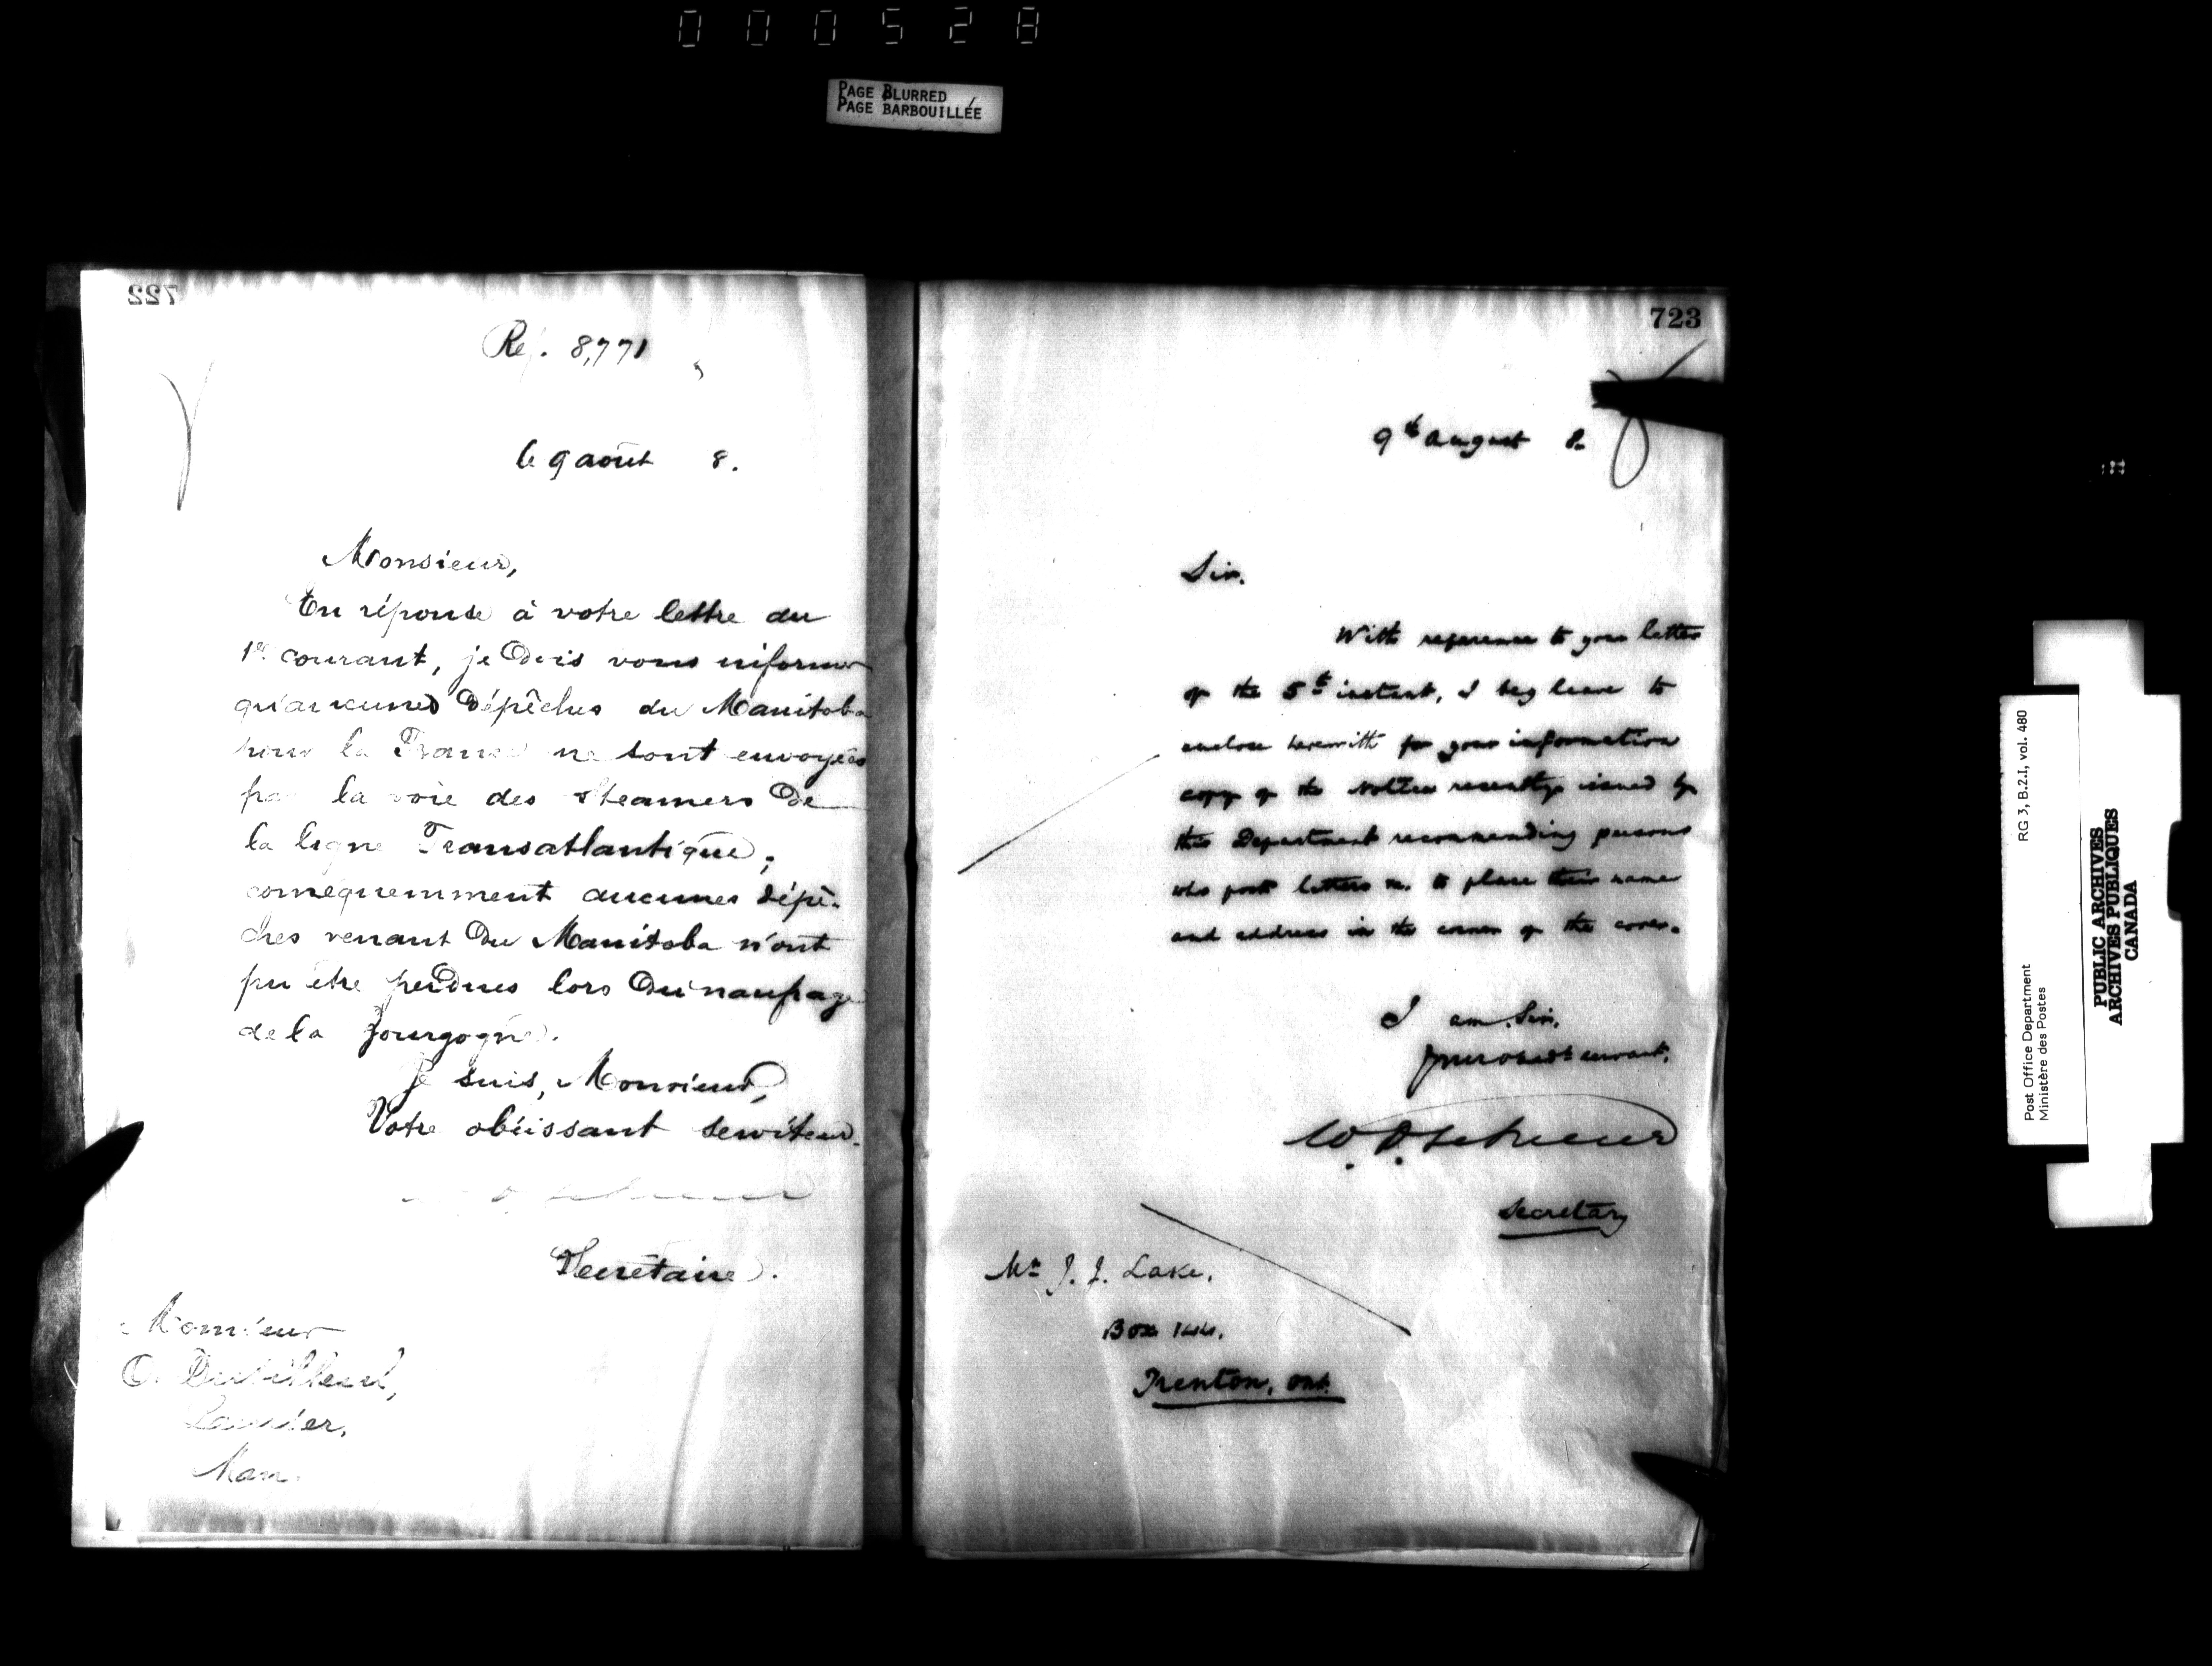 000528
PAGE BLURRED
PAGE BARBOUILLÉE
722
Réf. 8,771
le 9 août 8.
Monsieur,
En réponse à votre lettre du
1er courant, je dois vous informer
qu'aucunes dépêches du Manitoba
pour la France ne sont envoyées
par la voie des Steamers de
la ligne Transatlantique;
conséquemment aucunes dépê-
ches venant du Manitoba n'ont
pu être perdues lors du naufrage
de la Bourgogne.
Je suis, Monsieur,
Votre obéissant serviteur.
Secrétaire.
Monsieur
O.
Laurier,
Man.
723
9th August 8.
Sir.
With reference to your letter
of the 5th instant, I beg leave to
enclose herewith for your information
copy of the Notice recently issued by
this Department recommending persons
who post letters &c. to place their names
and address in the corner of the cover.
I am, Sir,
Your obedt servant,
W. D. LeSueur
Secretary
Mr J. J. Lake,
Box 144,
Trenton, Ont.
Post Office Department RG 3, B.2.I, vol. 480
Ministère des Postes
PUBLIC ARCHIVES
ARCHIVES PUBLIQUES
CANADA